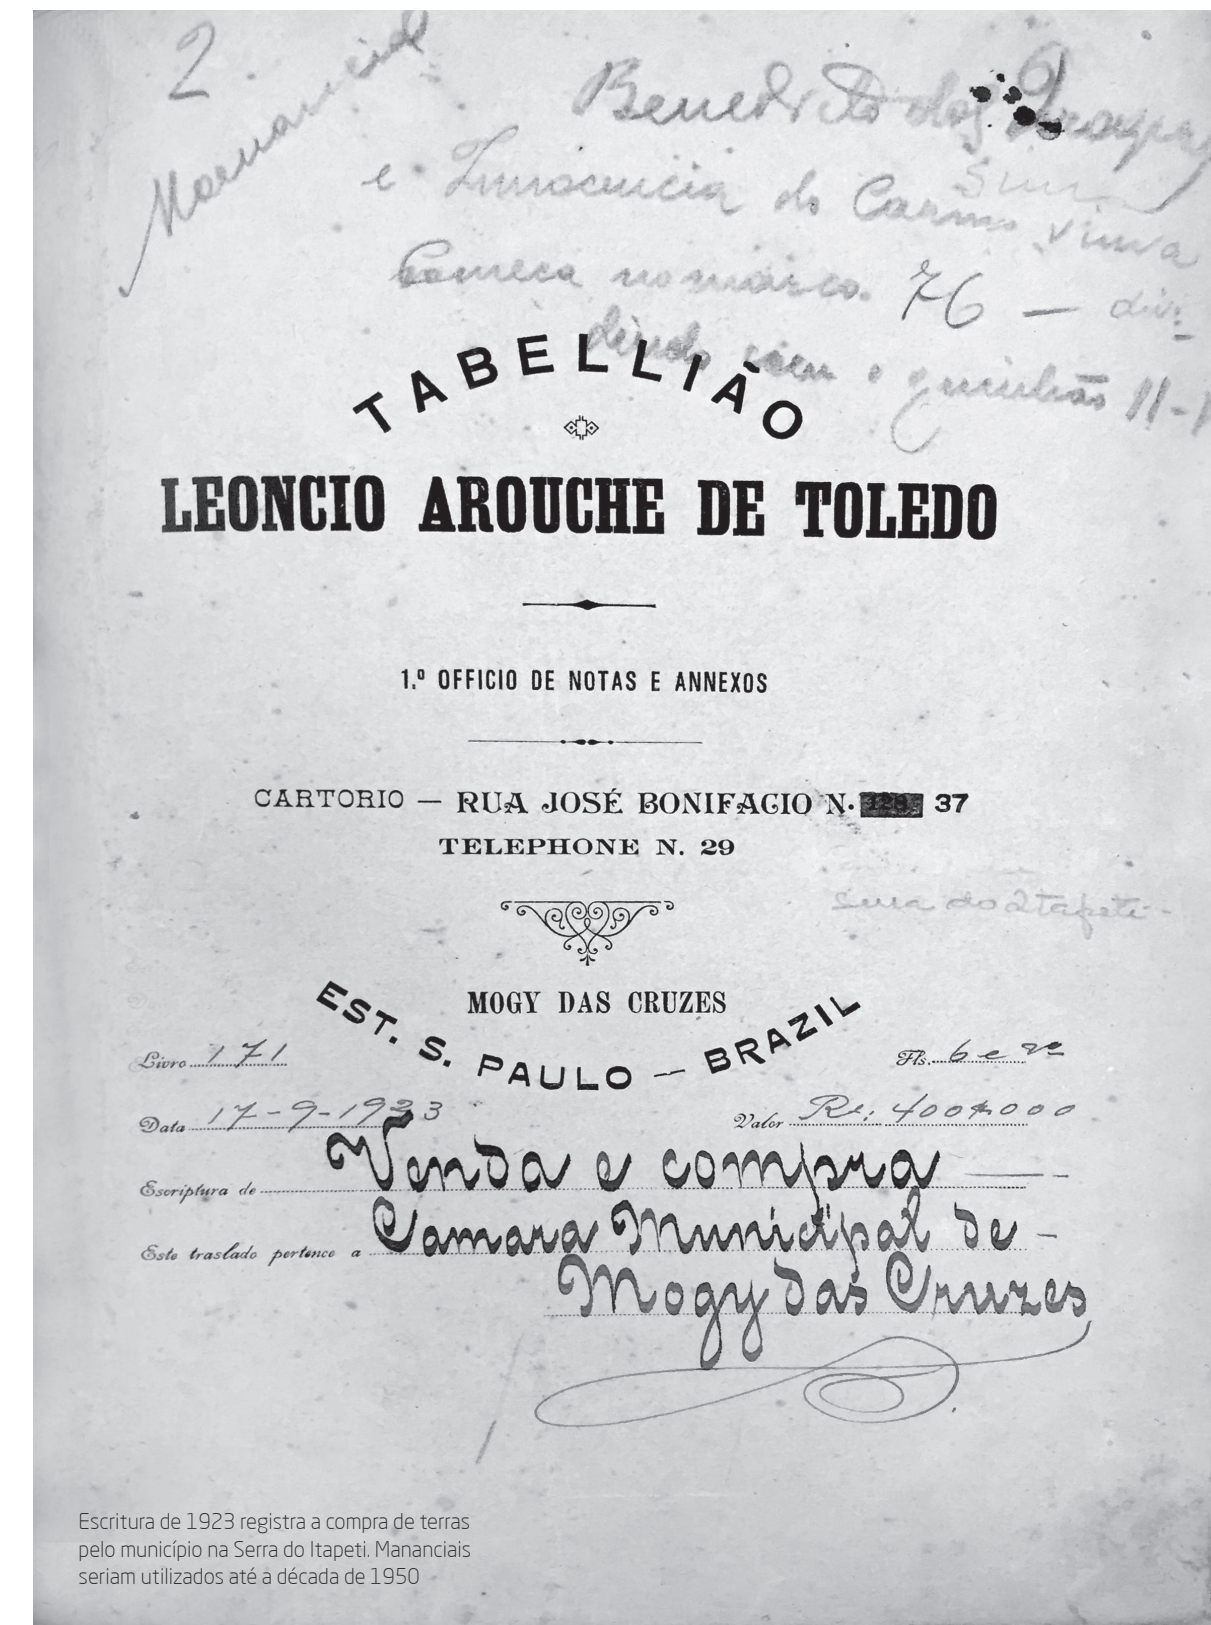 2
Manancial
Benedito dos
e Innocencia do Carmo viuva
Comeca no marco. 76 — divi-
dindo com o quinhão 11-
TABELLIÃO
LEONCIO AROUCHE DE TOLEDO
1.º OFFICIO DE NOTAS E ANNEXOS
CARTORIO — RUA JOSÉ BONIFACIO N. 128 37
TELEPHONE N. 29
serra do Itapeti -
MOGY DAS CRUZES
EST. S. PAULO — BRAZIL
Livro 171
Fls. 6 e
Data 17-9-1923
Valor Rs: 400$000
Escriptura de Venda e compra
Este traslado pertence a Camara Municipal de -
Mogy das Cruzes
Escritura de 1923 registra a compra de terras
pelo município na Serra do Itapeti. Mananciais
seriam utilizados até a década de 1950